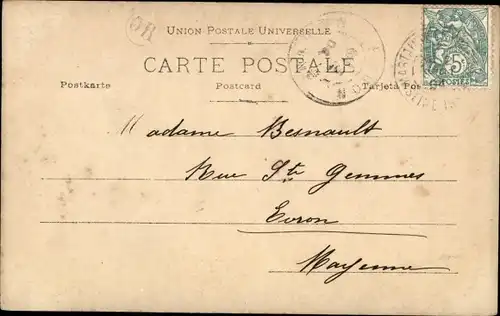 OR
UNION POSTALE UNIVERSELLE
CARTE POSTALE
Postkarte Postcard Tarjeta Pos
Madame Besnault
Rue Ste Gemmes
Evron
Mayenne
5c
POSTES